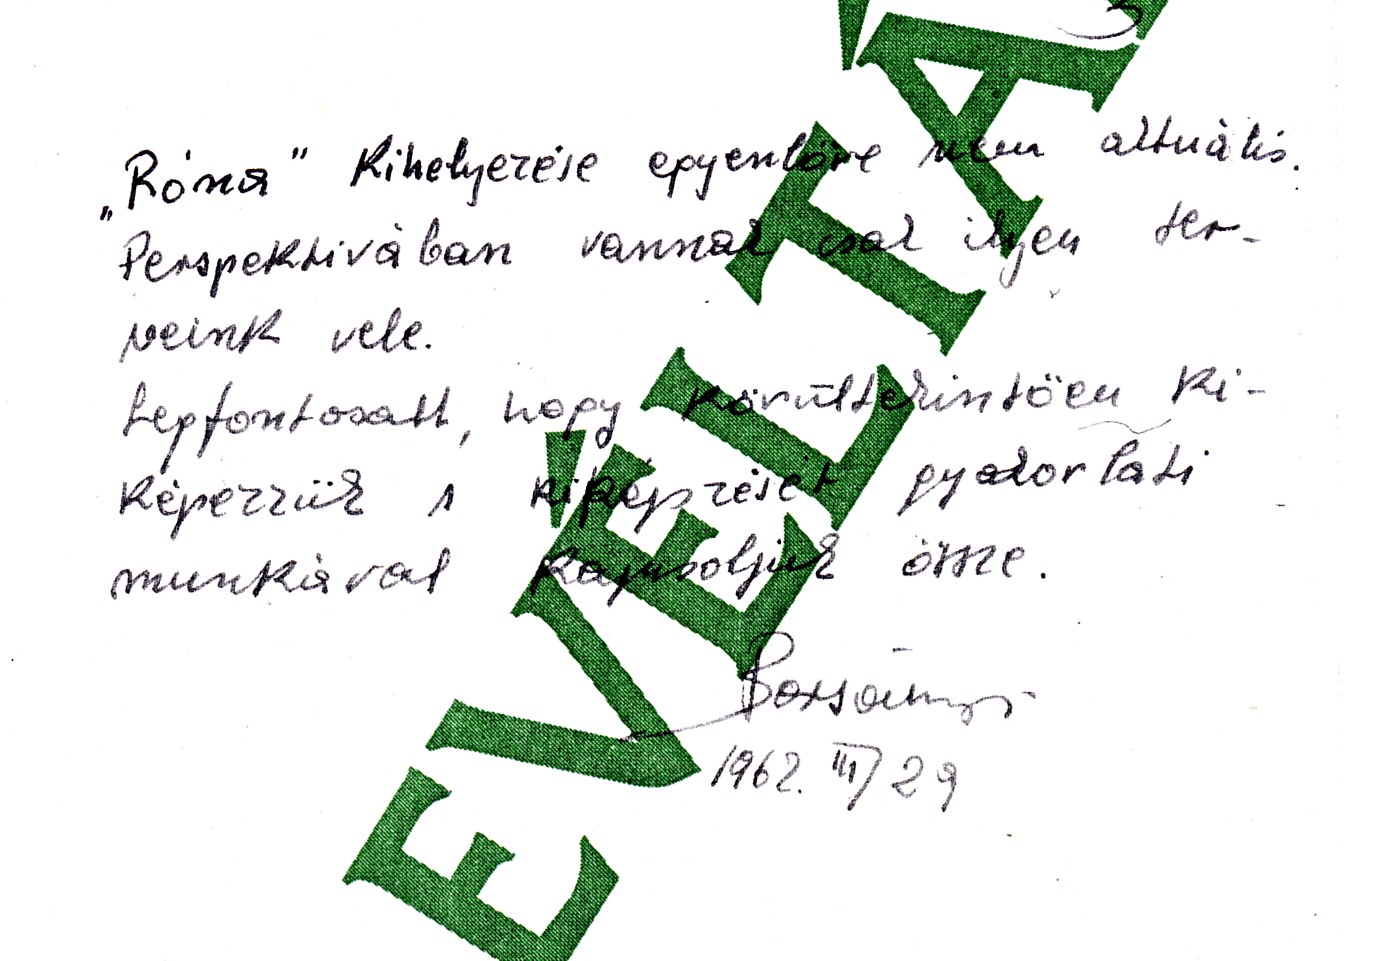 „Róna" kihelyezése egyenlőre nem aktuális.
Perspektivában vannak csak ilyen ter-
veink vele.
Legfontosabb, hogy körültekintöen ki-
képezzük s kiképzését gyakorlati
munkával kapcsoljuk össze.
Borsányi
1962. III/29
LEVÉLTÁR